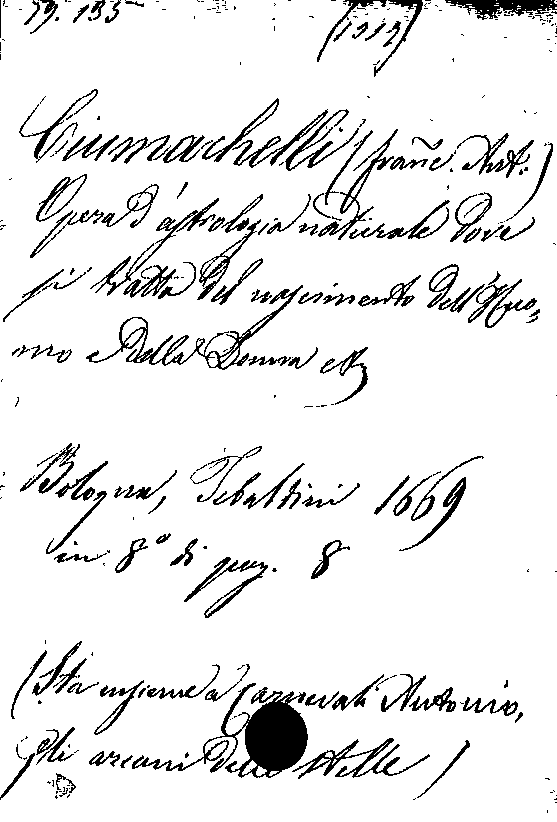 79. 135 (1313)
Ciumachelli (Franc. Ant.)
Opera d'astrologia naturale dove
si tratta del nascimento dell'Huo-
mo e della Donna etc
Bologna, Tebaldini 1669
in 8° di pag. 8
(Sta insieme a Carnevali Antonio,
Gli arcani delle stelle)